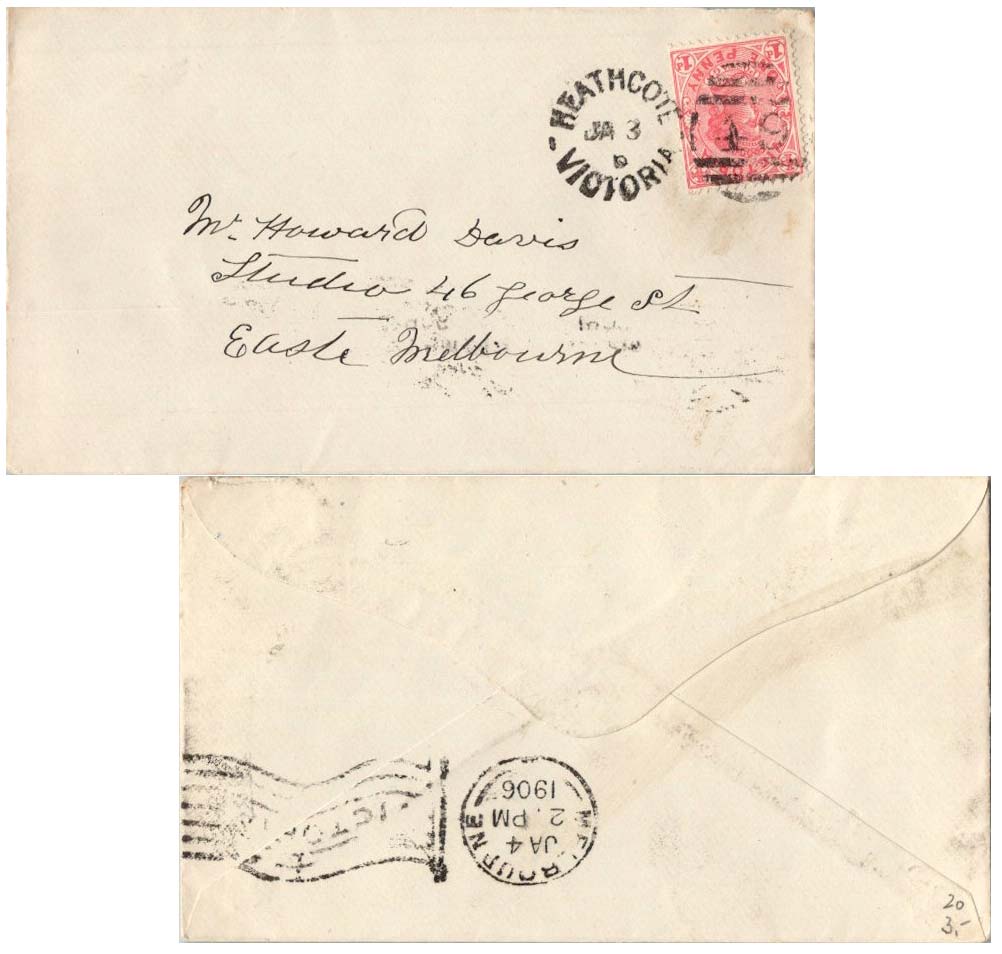 HEATHCOTE
JA 3
6
VICTORIA
ONE PENNY
1d 1d
Mr. Howard Davis
Studio 46 George St
East Melbourne
MELBOURNE
JA 4
2. PM
1906
VICTORIA
20
3,-